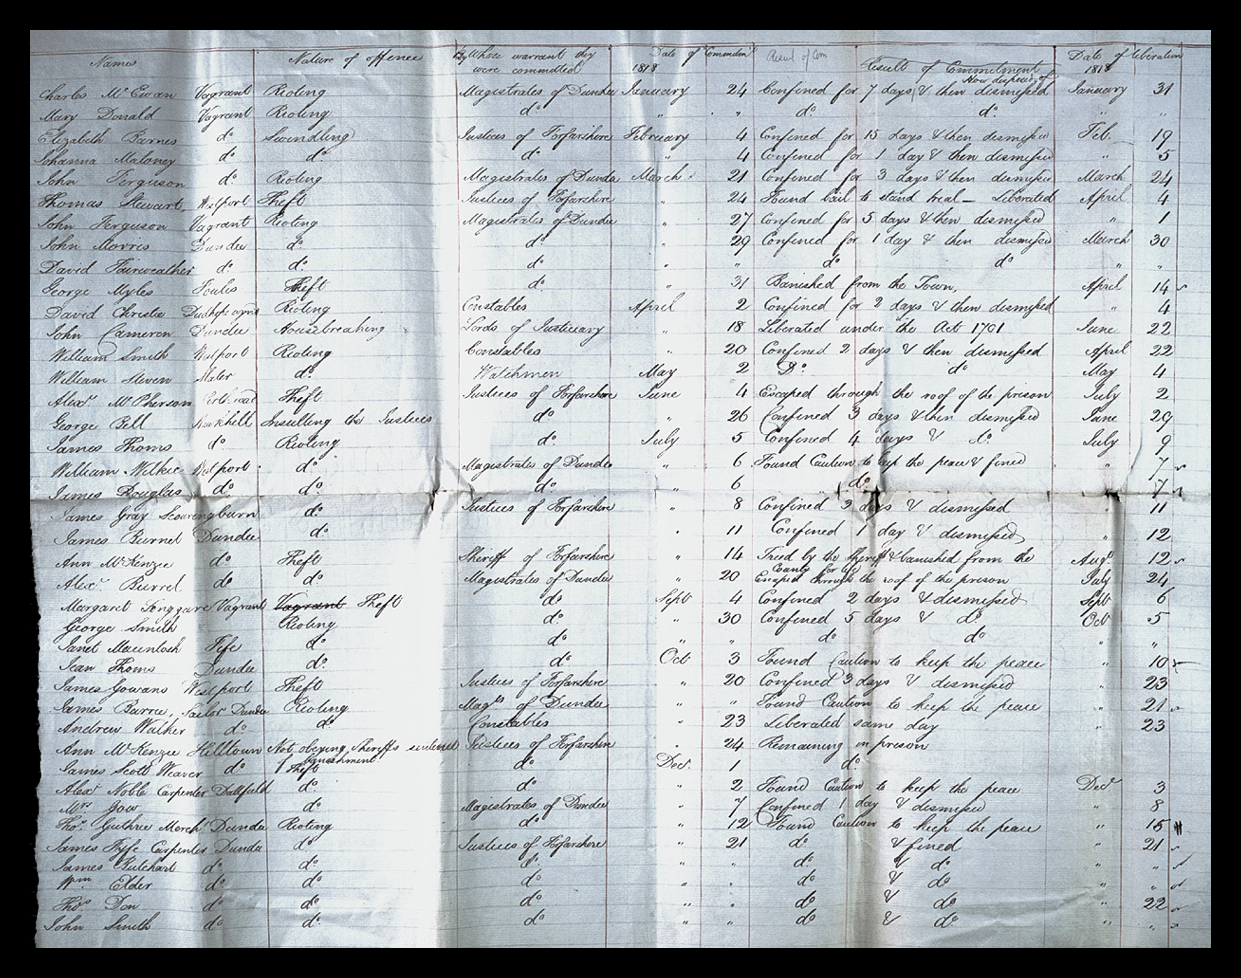 Names Nature of offence By Whose warrant they were committed Date of Commitmt 1818 Result of Com Result of Commitment How disposed of Date of Liberation 1818
Charles McEwan Vagrant Rioting Magistrates of Dundee January 24 Confined for 7 days & then dismissed January 31
Mary Donald Vagrant Rioting do " " do do " "
Elizabeth Barnes do Swindling Justices of Forfarshire February 4 Confined for 15 days & then dismissed Feb. 19
Johanna Maloney do do do " 4 Confined for 1 day & then dismissed " 5
John Ferguson do Rioting Magistrates of Dundee March 21 Confined for 3 days & then dismissed March 24
Thomas Stewart Westport Theft Justices of Forfarshire " 24 Found bail to stand trial – Liberated April 4
John Ferguson Vagrant Rioting Magistrates of Dundee " 27 Confined for 5 days & then dismissed " 1
John Morris Dundee do do " 29 Confined for 1 day & then dismissed March 30
David Fairweather do do do " " do do " "
George Myles Foules Theft do " 31 Banished from the Town, April 14
David Christie Rioting Constables April 2 Confined for 2 days & then dismissed " 4
John Cameron Dundee Housebreaking Lords of Justiciary " 18 Liberated under the Act 1701 June 22
William Smith Westport Rioting Constables " 20 Confined 2 days & then dismissed April 22
William Steven Mater do Watchmen May 2 Do do May 4
Alexr McPherson Theft Justices of Forfarshire June 4 Escaped through the roof of the prison July 2
George Gell Insulting the Justices do " 26 Confined 3 days & then dismissed June 29
James Thoms do Rioting do July 5 Confined 4 days & do July 9
William Wilkie Westport do Magistrates of Dundee " 6 Found Caution to keep the peace & fined " 7
James Douglas do do do " 6 do " 7
James Gray Scouringburn do Justices of Forfarshire " 8 Confined 3 days & dismissed " 11
James Burnet Dundee do " 11 Confined 1 day & dismissed " 12
Ann McKenzie do Theft Sheriff of Forfarshire " 14 Tried by the Sheriff & banished from the County for life Augt 12
Alexr Burrel do do Magistrates of Dundee " 20 Escaped through the roof of the prison July 24
Margaret Vagrant Vagrant Theft do Sept 4 Confined 2 days & dismissed Sept 6
George Smith Rioting do " 30 Confined 5 days & do Oct 5
Janet Macintosh Fife do do " " do do " "
Jean Thoms Dundee do do Oct 3 Found Caution to keep the peace " 10
James Gowans Westport Theft Justices of Forfarshire " 20 Confined 3 days & dismissed " 23
James Barrie Tailor Dundee Rioting Magts of Dundee " " Found Caution to keep the peace " 21
Andrew Walker do do Constables " 23 Liberated same day " 23
Ann McKenzie Hilltown Not obeying Sheriffs sentence of banishment Justices of Forfarshire " 24 Remaining in prison
James Scott Weaver do Theft do Decr 1 do
Alexr Noble Carpenter do do " 2 Found Caution to keep the peace Decr 3
Mrs Gow do Magistrates of Dundee " 7 Confined 1 day & dismissed " 8
Thos Guthrie Mercht Dundee Rioting do " 12 Found Caution to keep the peace " 15
James Fyfe Carpenter Dundee do Justices of Forfarshire " 21 do & fined " 21
James Butchart do do do " " do & do " "
Wm Elder do do do " " do & do " "
Thos Don do do do " " do & do " 22
John Smith do do do " " do & do " "